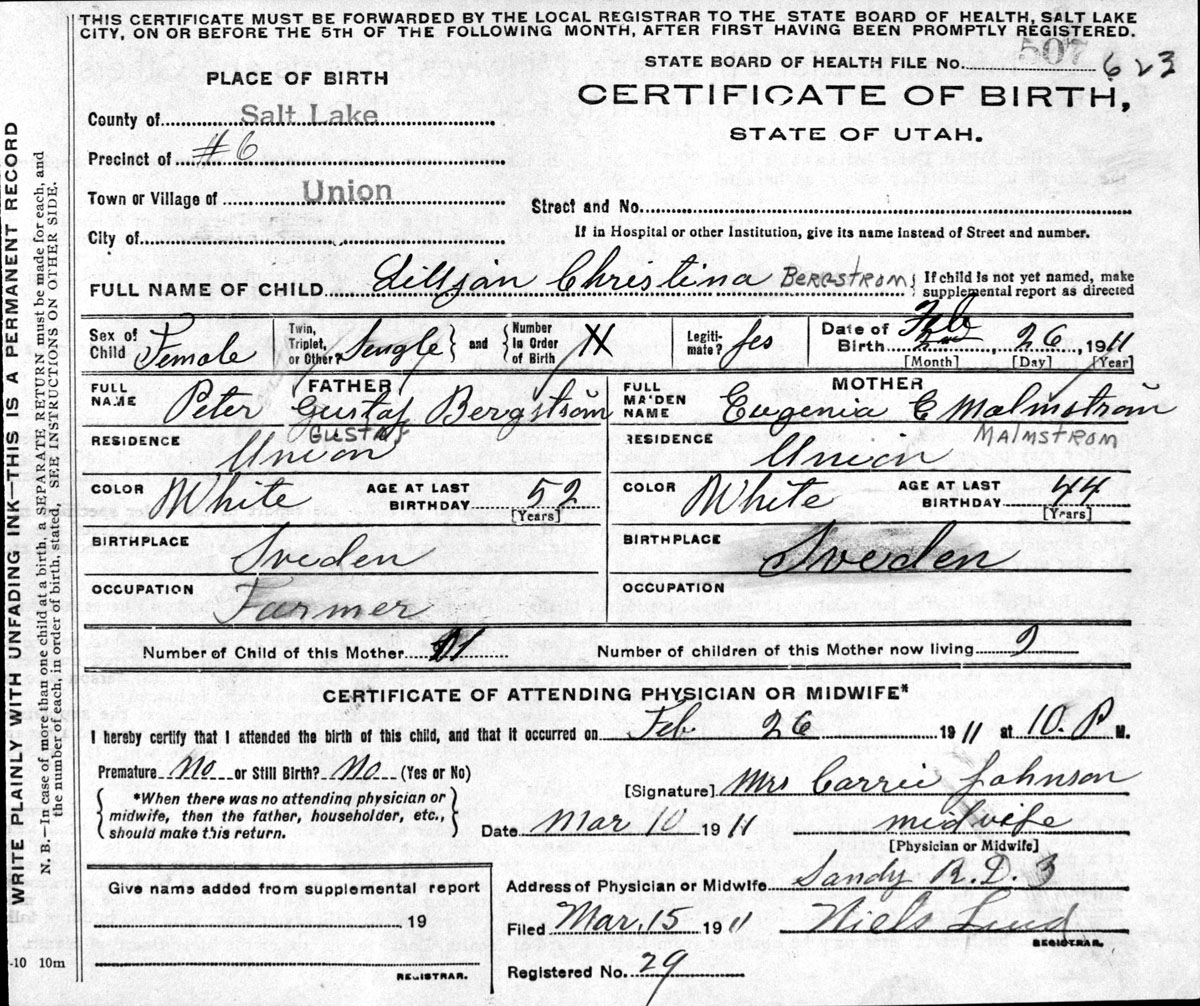 THIS CERTIFICATE MUST BE FORWARDED BY THE LOCAL REGISTRAR TO THE STATE BOARD OF HEALTH, SALT LAKE
CITY, ON OR BEFORE THE 5TH OF THE FOLLOWING MONTH, AFTER FIRST HAVING BEEN PROMPTLY REGISTERED.
STATE BOARD OF HEALTH FILE No. 507 623
PLACE OF BIRTH
CERTIFICATE OF BIRTH,
STATE OF UTAH.
County of Salt Lake
Precinct of #6
Town or Village of Union
Street and No.
City of
If in Hospital or other Institution, give its name instead of Street and number.
FULL NAME OF CHILD Lillian Christina BERGSTROM { If child is not yet named, make
supplemental report as directed
Sex of Child Female
Twin, Triplet, or Other? Single } and { Number In Order of Birth 11
Legiti-mate? yes
Date of Birth Feb 26, 1911
[Month] [Day] [Year]
FATHER
FULL NAME Peter Gustaf Bergström
GUSTAF
RESIDENCE Union
COLOR White AGE AT LAST BIRTHDAY 52
[Years]
BIRTHPLACE Sveden
OCCUPATION Farmer
MOTHER
FULL MAIDEN NAME Eugenia C Malmström
MALMSTROM
RESIDENCE Union
COLOR White AGE AT LAST BIRTHDAY 44
[Years]
BIRTHPLACE Sveden
OCCUPATION
Number of Child of this Mother 11 Number of children of this Mother now living 9
CERTIFICATE OF ATTENDING PHYSICIAN OR MIDWIFE*
I hereby certify that I attended the birth of this child, and that it occurred on Feb 26 1911 at 10. P M.
Premature No or Still Birth? No (Yes or No)
[Signature] Mrs Carrie Johnson
*When there was no attending physician or
midwife, then the father, householder, etc.,
should make this return.
Date Mar 10 1911 midvife
[Physician or Midwife]
Give name added from supplemental report
19
REGISTRAR.
Address of Physician or Midwife Sandy R.D. 3
Filed Mar. 15 1911 Niels Lind
REGISTRAR.
Registered No. 29
-10 10m
WRITE PLAINLY WITH UNFADING INK—THIS IS A PERMANENT RECORD
N. B.—In case of more than one child at a birth, a SEPARATE RETURN must be made for each, and
the number of each, in order of birth, stated, SEE INSTRUCTIONS ON OTHER SIDE.